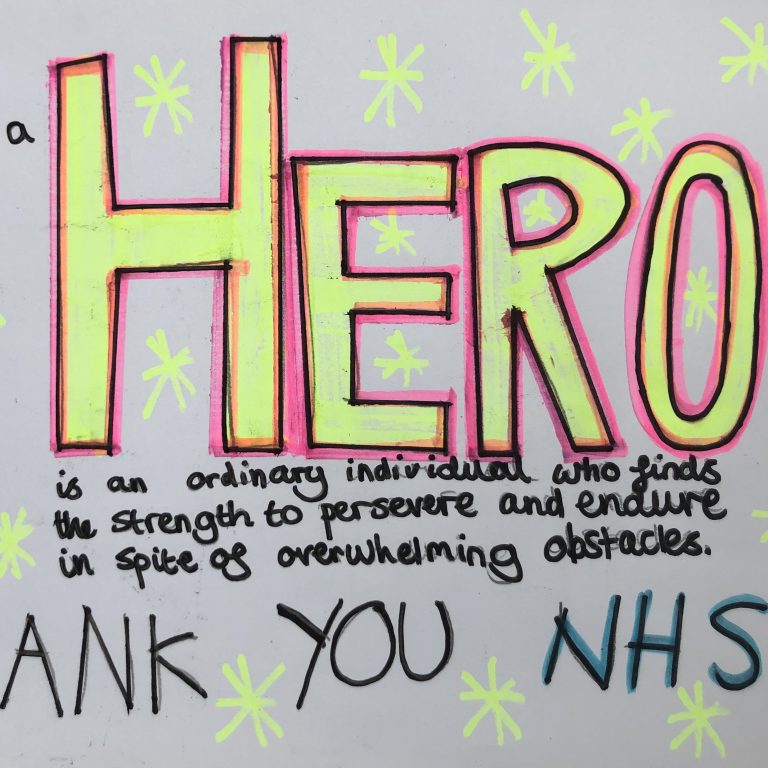 a HERO
is an ordinary individual who finds
the strength to persevere and endure
in spite of overwhelming obstacles.
ANK YOU NHS